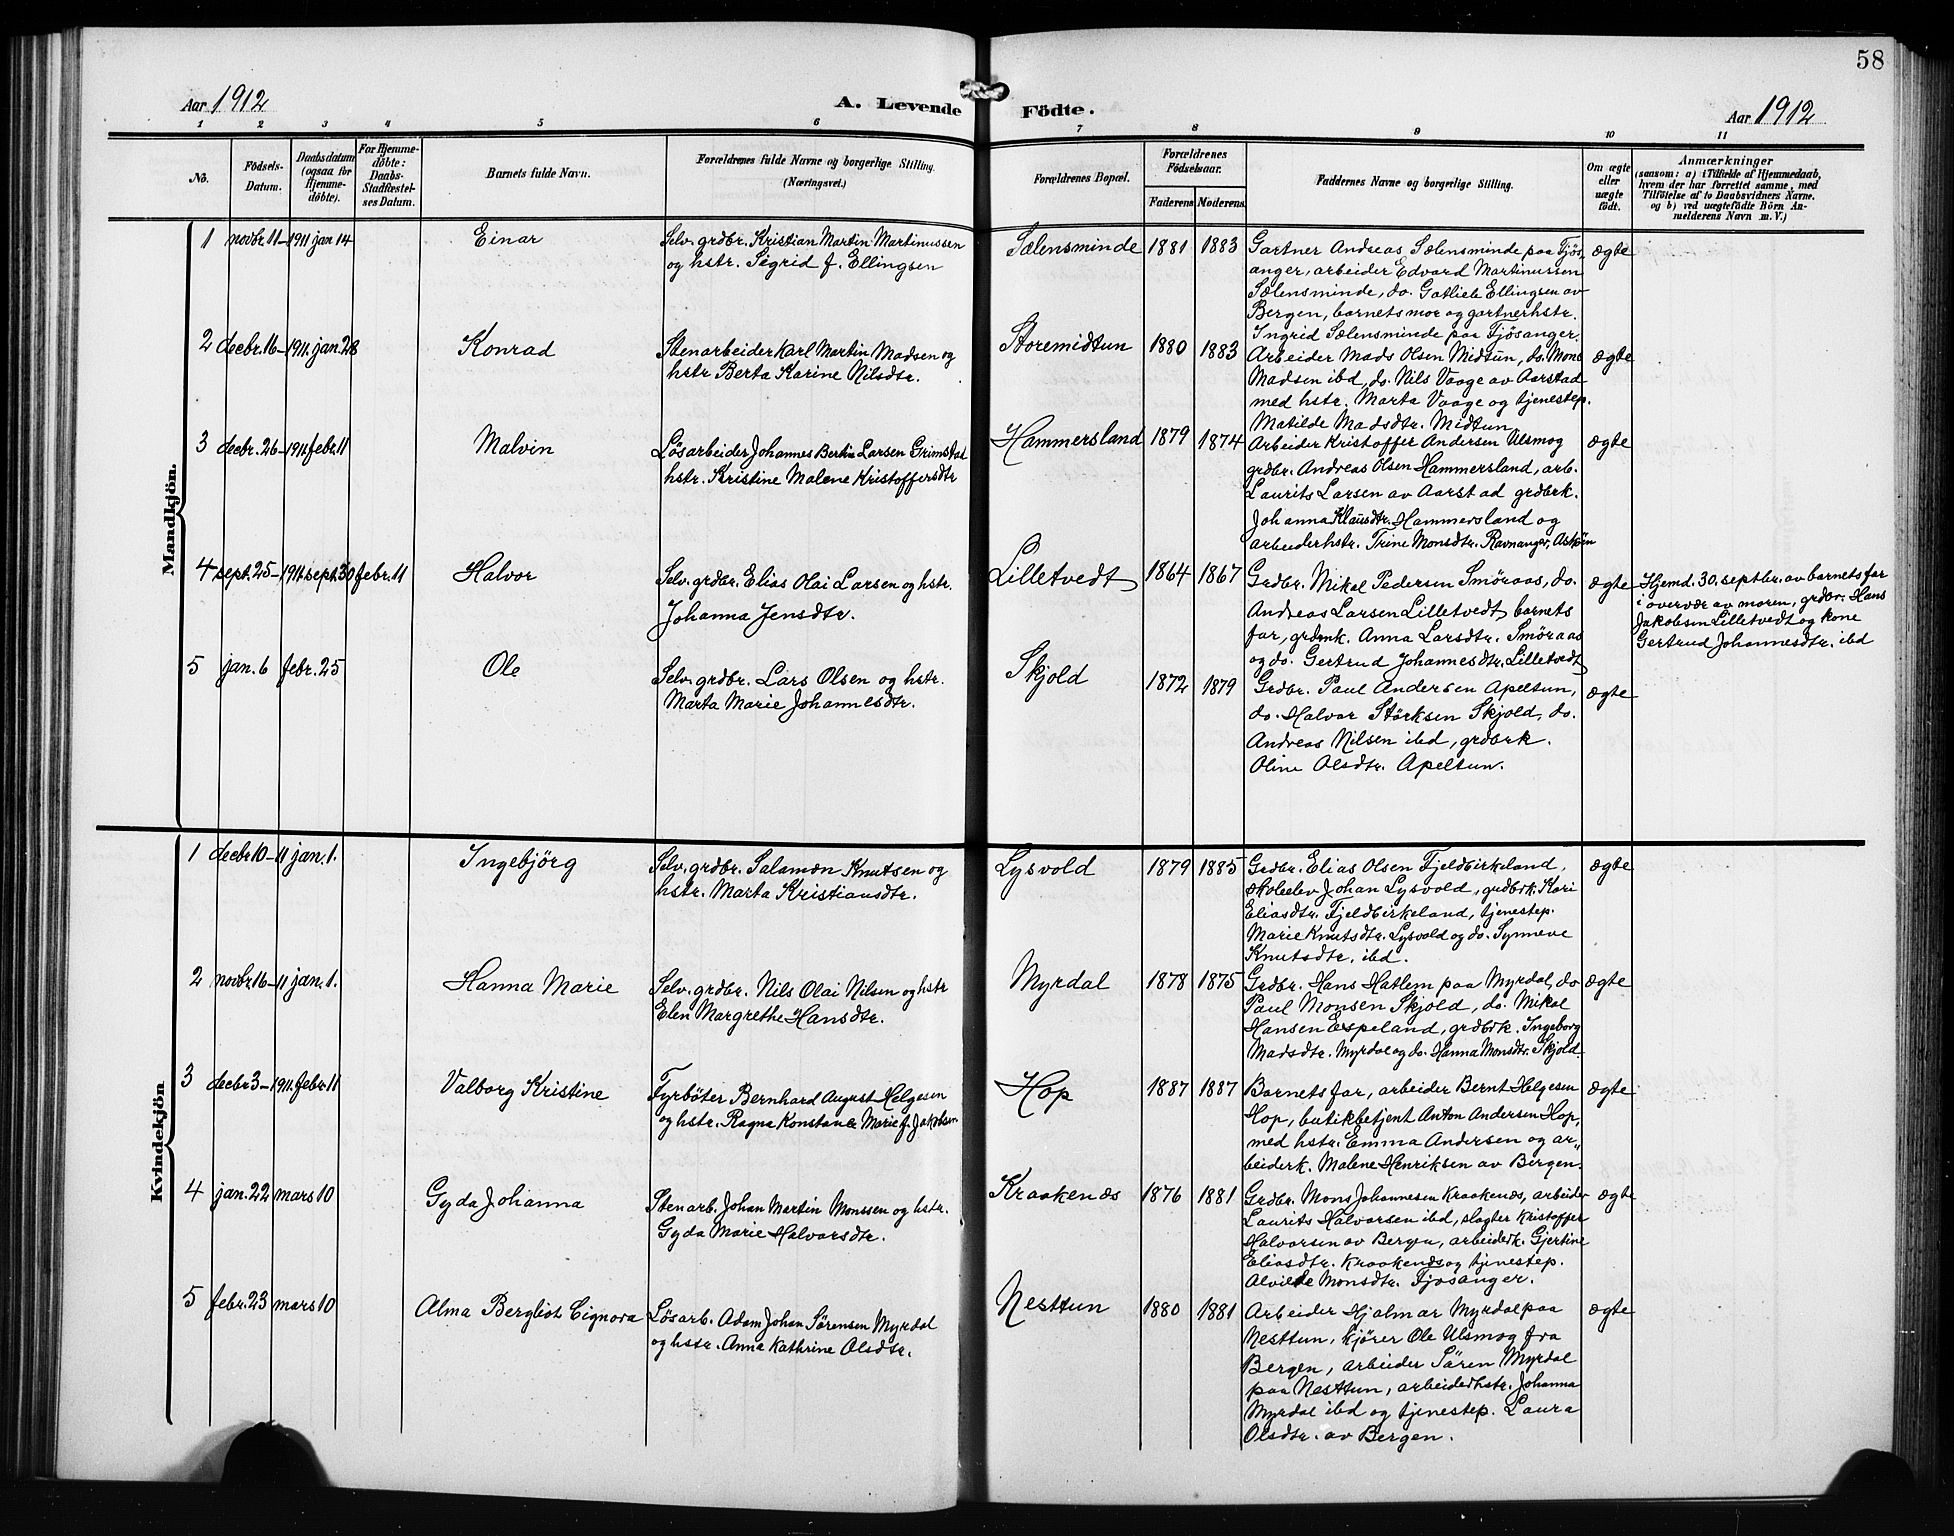 58
Aar 1912
A. Levende Födte.
Aar 1912
1 2 3 4 5 6 7 8 9 10 11
No.
Födsels-
Datum.
Daabsdatum
(ogsaa for
Hjemme-
döbte).
For Hjemme-
döbte:
Daabs-
Stadfæstel-
ses Datum.
Barnets fulde Navn.
Forældrenes fulde Navne og borgerlige Stilling.
(Næringsvei.)
Forældrenes Bopæl.
Forældrenes
Födselsaar.
Faderens
Moderens
Faddernes Navne og borgerlige Stilling.
Om ægte
eller
uægte
födt.
Anmærkninger
(saasom: a) i Tilfælde af Hjemmedaab,
hvem der har forrettet samme, med
Tilföielse af to Daabsvidners Navne.
og b) ved uægtefödte Börn An-
melderens Navn m. V.)
Mandkjön.
1 novbr. 11-1911 jan 14 Einar
Selv. grdbr. Kristian Martin Martinussen
og hstr. Sigrid f. Ellingsen
Sælensminde 1881 1883
Gartner Andreas Sælensminde paa Fjös-
anger, arbeider Edvard Martinussen
Sælensminde, do. Gotlieb Ellingsen av
Bergen, barnets mor og gartnerhstr.
Ingrid Sælensminde paa Fjösanger.
ægte
2 decbr. 16-1911. jan. 28 Konrad
Stenarbeider Karl Martin Madsen og
hstr Berta Karine Nilsdtr.
Storemidtun 1880 1883
Arbeider Mads Olsen Midtun, do. Mons
Madsen ibd, do. Nils Vaage av Aarstad
med hstr. Marta Vaage og tjenestep.
Matilde Madsdtr. Midtun
ægte
3 decbr. 26-1911. febr. 11 Malvin
Lösarbeider Johannes Bertin Larsen Grimstad
hstr. Kristine Malene Kristoffersdtr
Hammersland 1879 1874
Arbeider Kristoffer Andersen Ulsmog
grdbr. Andreas Olsen Hammersland, arb.
Laurits Larsen av Aarstad grdbrk.
Johanna Klausdtr. Hammersland og
arbeiderhstr. Trine Monsdtr. Ravnanger, Asköen
ægte
4 sept. 25-1911 sept. 30 febr. 11 Halvor
Selv. grdbr. Elias Olai Larsen og hstr.
Johanna Jensdtr.
Lilletvedt 1864 1867
Grdbr. Mikal Pedersen Smöraas, do.
Andreas Larsen Lilletvedt, barnets
far, grdmk. Anna Larsdtr. Smöraas
og do. Gertrud Johannesdtr. Lilletvedt
ægte
Hjemd. 30. septbr. av barnets far
i overvær av moren, grdbr. Hans
Jakobsen Lilletvedt og kone
Gertrud Johannesdtr. ibd
5 jan. 6 febr. 25 Ole
Selv. grdbr. Lars Olsen og hstr.
Marta Marie Johannesdtr.
Skjold 1872 1879
Grdbr. Paul Andersen Apeltun,
do. Halvor Störksen Skjold, do.
Andreas Nilsen ibd, grdbrk.
Oline Olsdtr. Apeltun.
ægte
Kvindekjön
1 decbr 10-11 jan. 1. Ingebjörg
Selv. grdbr. Salamon Knutsen og
hstr. Marta Kristiansdtr.
Lysvold 1879 1885
Grdbr. Elias Olsen Fjeldbirkeland,
skoleelev Johan Lysvold, grdbrk. Kari
Eliasdtr. Fjeldbirkeland, tjenestep.
Marie Knutsdtr. Lysvold og do. Synneve
Knutsdtr. ibd.
ægte
2 novbr. 16-11 jan. 1. Hanna Marie
Selv. grdbr. Nils Olai Nilsen og hstr
Elen Margrethe Hansdtr.
Myrdal 1878 1875
Grdbr. Hans Hatlem paa Myrdal, do
Paul Monsen Skjold, do. Mikal
Hansen Espeland, grdbrk. Ingeborg
Madsdtr. Myrdal og do. Hanna Monsdtr. Skjold
ægte
3 decbr 3-1911. febr. 11 Valborg Kristine
Fyrböter Bernhard August Helgesen
og hstr. Ragna Konstance Marie f. Jakobsen
Hop 1887 1887
Barnets far, arbeider Bernt Helgesen
Hop, butikbetjent Anton Andersen Hop,
med hstr. Emma Andersen og ar-
beiderk. Malene Henriksen av Bergen.
ægte
4 jan. 22 mars 10 Gyda Johanna
Stenarb. Johan Martin Monssen og hstr.
Gyda Marie Halvorsdtr.
Kraakenæs 1876 1881
Grdbr. Mons Johannesen Kraakenæs, arbeider
Laurits Halvorsen ibd, slagter Kristoffer
Halvorsen av Bergen, arbeiderk. Gjertine
Eliasdtr. Kraakenæs og tjenestep.
Alvilde Monsdtr. Fjosanger.
ægte
5 febr. 23 mars 10 Alma Bergliot Cignora
Lösarb. Adam Johan Sørensen Myrdal
og hstr. Anna Kathrine Olsdtr.
Nesttun 1880 1881
Arbeider Hjalmar Myrdal paa
Nesttun, kjører Ole Ulsmog fra
Bergen, arbeider Sören Myrdal
paa Nesttun, arbeiderhstr. Johanna
Myrdal ibd og tjenestep. Laura
Olsdtr. av Bergen.
ægte